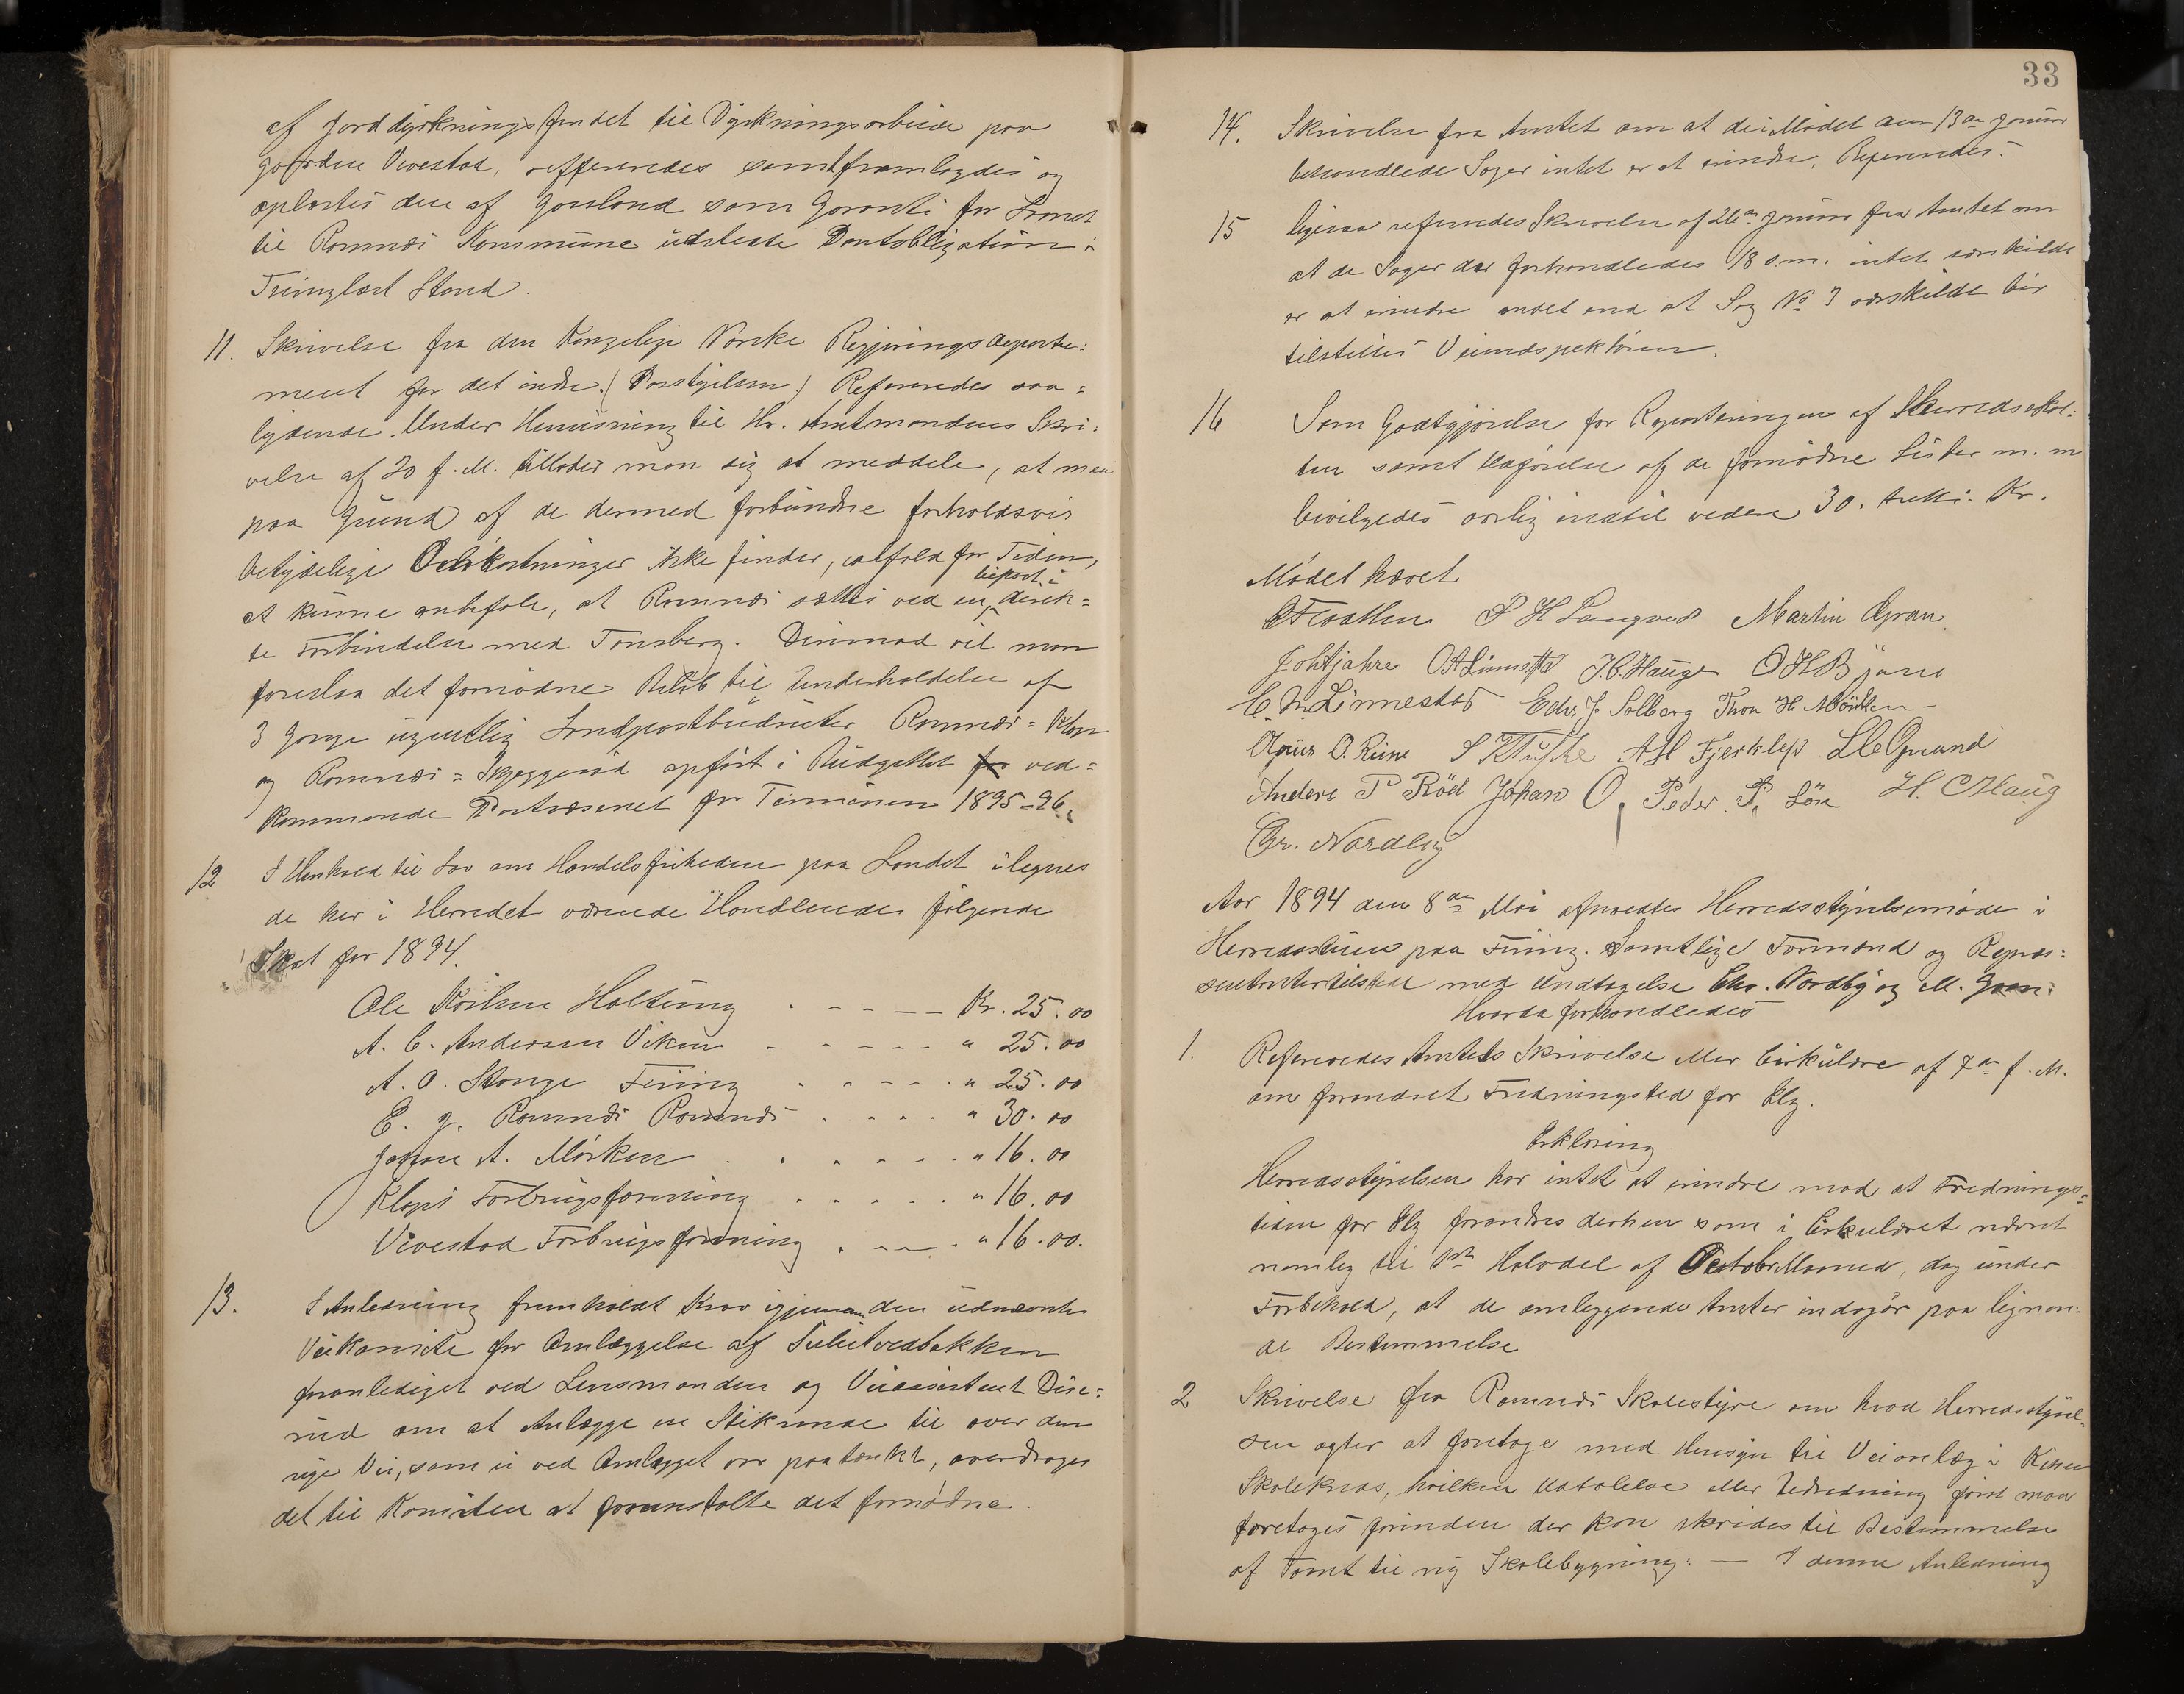 af Jorddyrkningsfondet til Dyrkningsarbeide paa
Gaarden Vivestad, refferenedes samt framlagdes og
oplæstes den af Gaasland som Garanti for Laanet
til Ramnæs Kommune udstedte Pantobligation i
Tinglæst Stand.
11. Skrivelse fra den Kongelige Norske Regjerings Departe:
ment for det indre. (Poststyrelsen) Refereredes saa=
lydende. Under Henvisning til Hr. Amtmandens Skri:
velse af 20 f. M. tillader man sig at meddele, at man
paa Grund af de dermed forbundne forholdsvis
betydelige Omkostninger ikke finder, ialfald for Tiden,
at kunne anbefale, at Ramnæs sættes ved en direk=
te Forbindelse med Tønsberg. Derimod vil man
foreslaa det fornødne Beløb til Underholdelse af
3 Gange ugentlig Landpostbudruter Ramnæs = Klop
og Ramnæs = Skjeggerød opført i Budgettet for ved=
kommende Postvæsenet for Terminen 1895-96.
12 I Henhold til Lov om Handelsfriheden paa Landet ilegnes
de her i Herredet værende Handlende følgende
Skat for 1894.
Ole Holtung Kr. 25.00
A. C. Andersen Viken " 25.00
A. O. Stange Fuing " 25.00
E. G. Ramnæs Ramnæs " 30.00
Johan A. Mørken " 16.00
Klops Forbrugsforening " 16.00
Vivestad Forbrugsforening " 16.00.
13. I Anledning fremholdt Krav igjennem den udnævnte
Veikomite for Omlæggelse af
foranlediget ved Lensmanden og Veiassistent Dise=
rud om at Anlægge en Stikrende til over den
nye Vei, som ei ved Anlægget var paatænkt, overdrages
det til Komiteen at foranstalte det fornødne.
33
14. Skrivelse fra Amtet om at de i Mødet den 13de Januar
behandlede Sager intet er at erindre. Refereredes.
15 ligesaa refereredes Skrivelse af 26de Januar fra Amtet om
at de Sager der forhandledes 18 s.m. intet særskildt
er at erindre andet end at Sag No 7 særskildt bør
tilstilles Veiinspektøren.
16 Som Godtgjørelse for Reparteringen af Herredsskat:
ten samt Udførelse af de fornødne Lister m. m
bevilgedes aarlig indtil videre 30. tretti. Kr.
Mødet hævet
P H Langved Martin Gran
O A Linnestad H. C. Hauge O H Bjune
C. M. Linnestad Edv. J. Solberg Thor H Mörken
O. Reine A H Fjerskless L C Grand
Anders P Röd Johan O. Peder P. Lön H. C Haug
Chr. Nordby
Aar 1894 den 8de Mai afholdtes Herredsstyrelsemøde i
Herredsstuen paa Fuing. Samtlige Formænd og Repræ:
sentanter tilstede med Undtagelse Chr. Nordby og M. Gran.
Hvorda forhandledes
1. Refereredes Amtets Skrivelse eller Cirkulære af 7de f. M.
om forandret Fredningstid for Elg.
Erklæring
Herredsstyrelsen har intet at erindre mod at Frednings=
tiden for Elg forandres derhen som i Cirkulæret nævnt
nemlig til 1ste Halvdel af October Maaned, dog under
Forbehold, at de omliggende Amter indgår paa lignen:
de Bestemmelse
2 Skrivelse fra Ramnæs Skolestyre om hvad Herredsstyrel=
sen agter at foretage med Hensyn til Veianlæg i
Skolekreds, hvilken Udtalelse eller Udredning først maa
foretages forinden der kan skrides til Bestemmelse
af Tomt til ny Skolebygning: — I denne Anledning